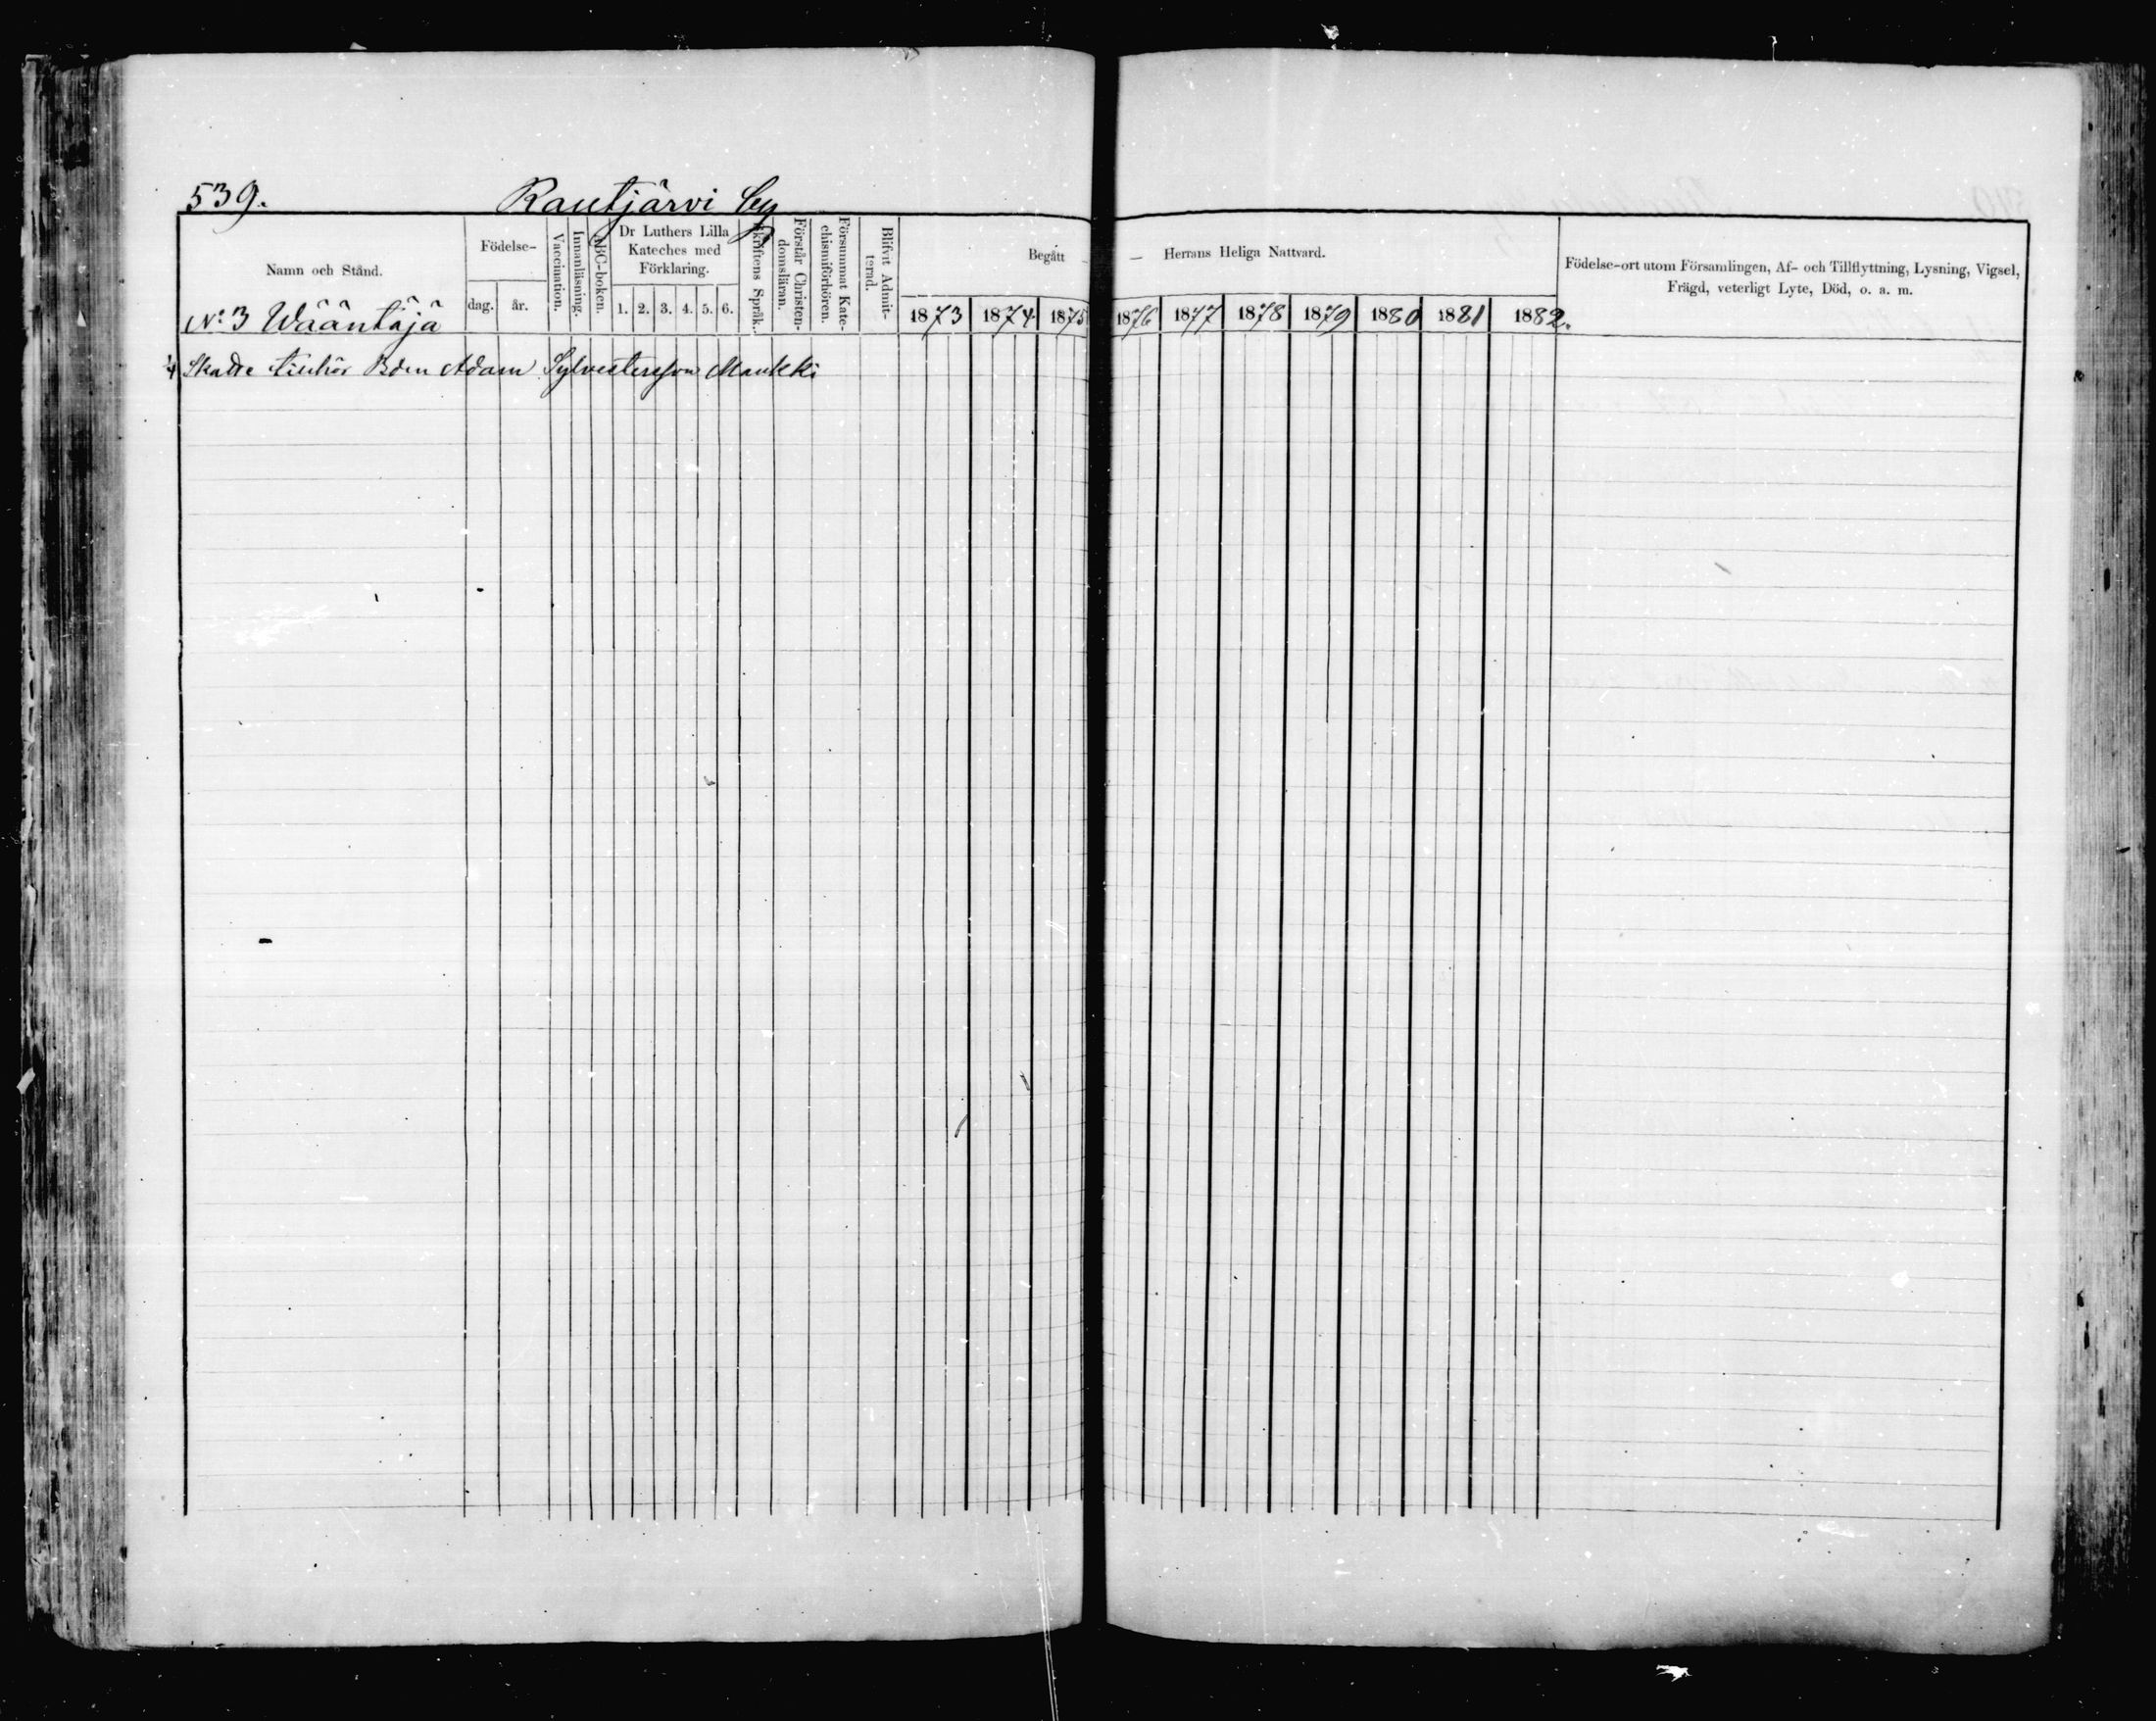 539. Rautjärvi by
Namn och Stånd.
Födelse-
dag. år.
Vaccination.
Innanläsning.
ABC-boken.
Dr Luthers Lilla
Kateches med
Förklaring.
1. 2. 3. 4. 5. 6.
Skriftens Språk.
Förstår Christen-
domsläran.
Försummat Kate-
chismiförhören.
Blifvit Admit-
terad.
Begått — — Herrans Heliga Nattvard.
1873 1874 1875 1876 1877 1878 1879 1880 1881 1882.
Födelse-ort utom Församlingen, Af- och Tillflyttning, Lysning, Vigsel,
Frägd, veterligt Lyte, Död, o. a. m.
No: 3 Wääntäjä
Skatte tillhör Bden Adam Sylvestersson Maukki